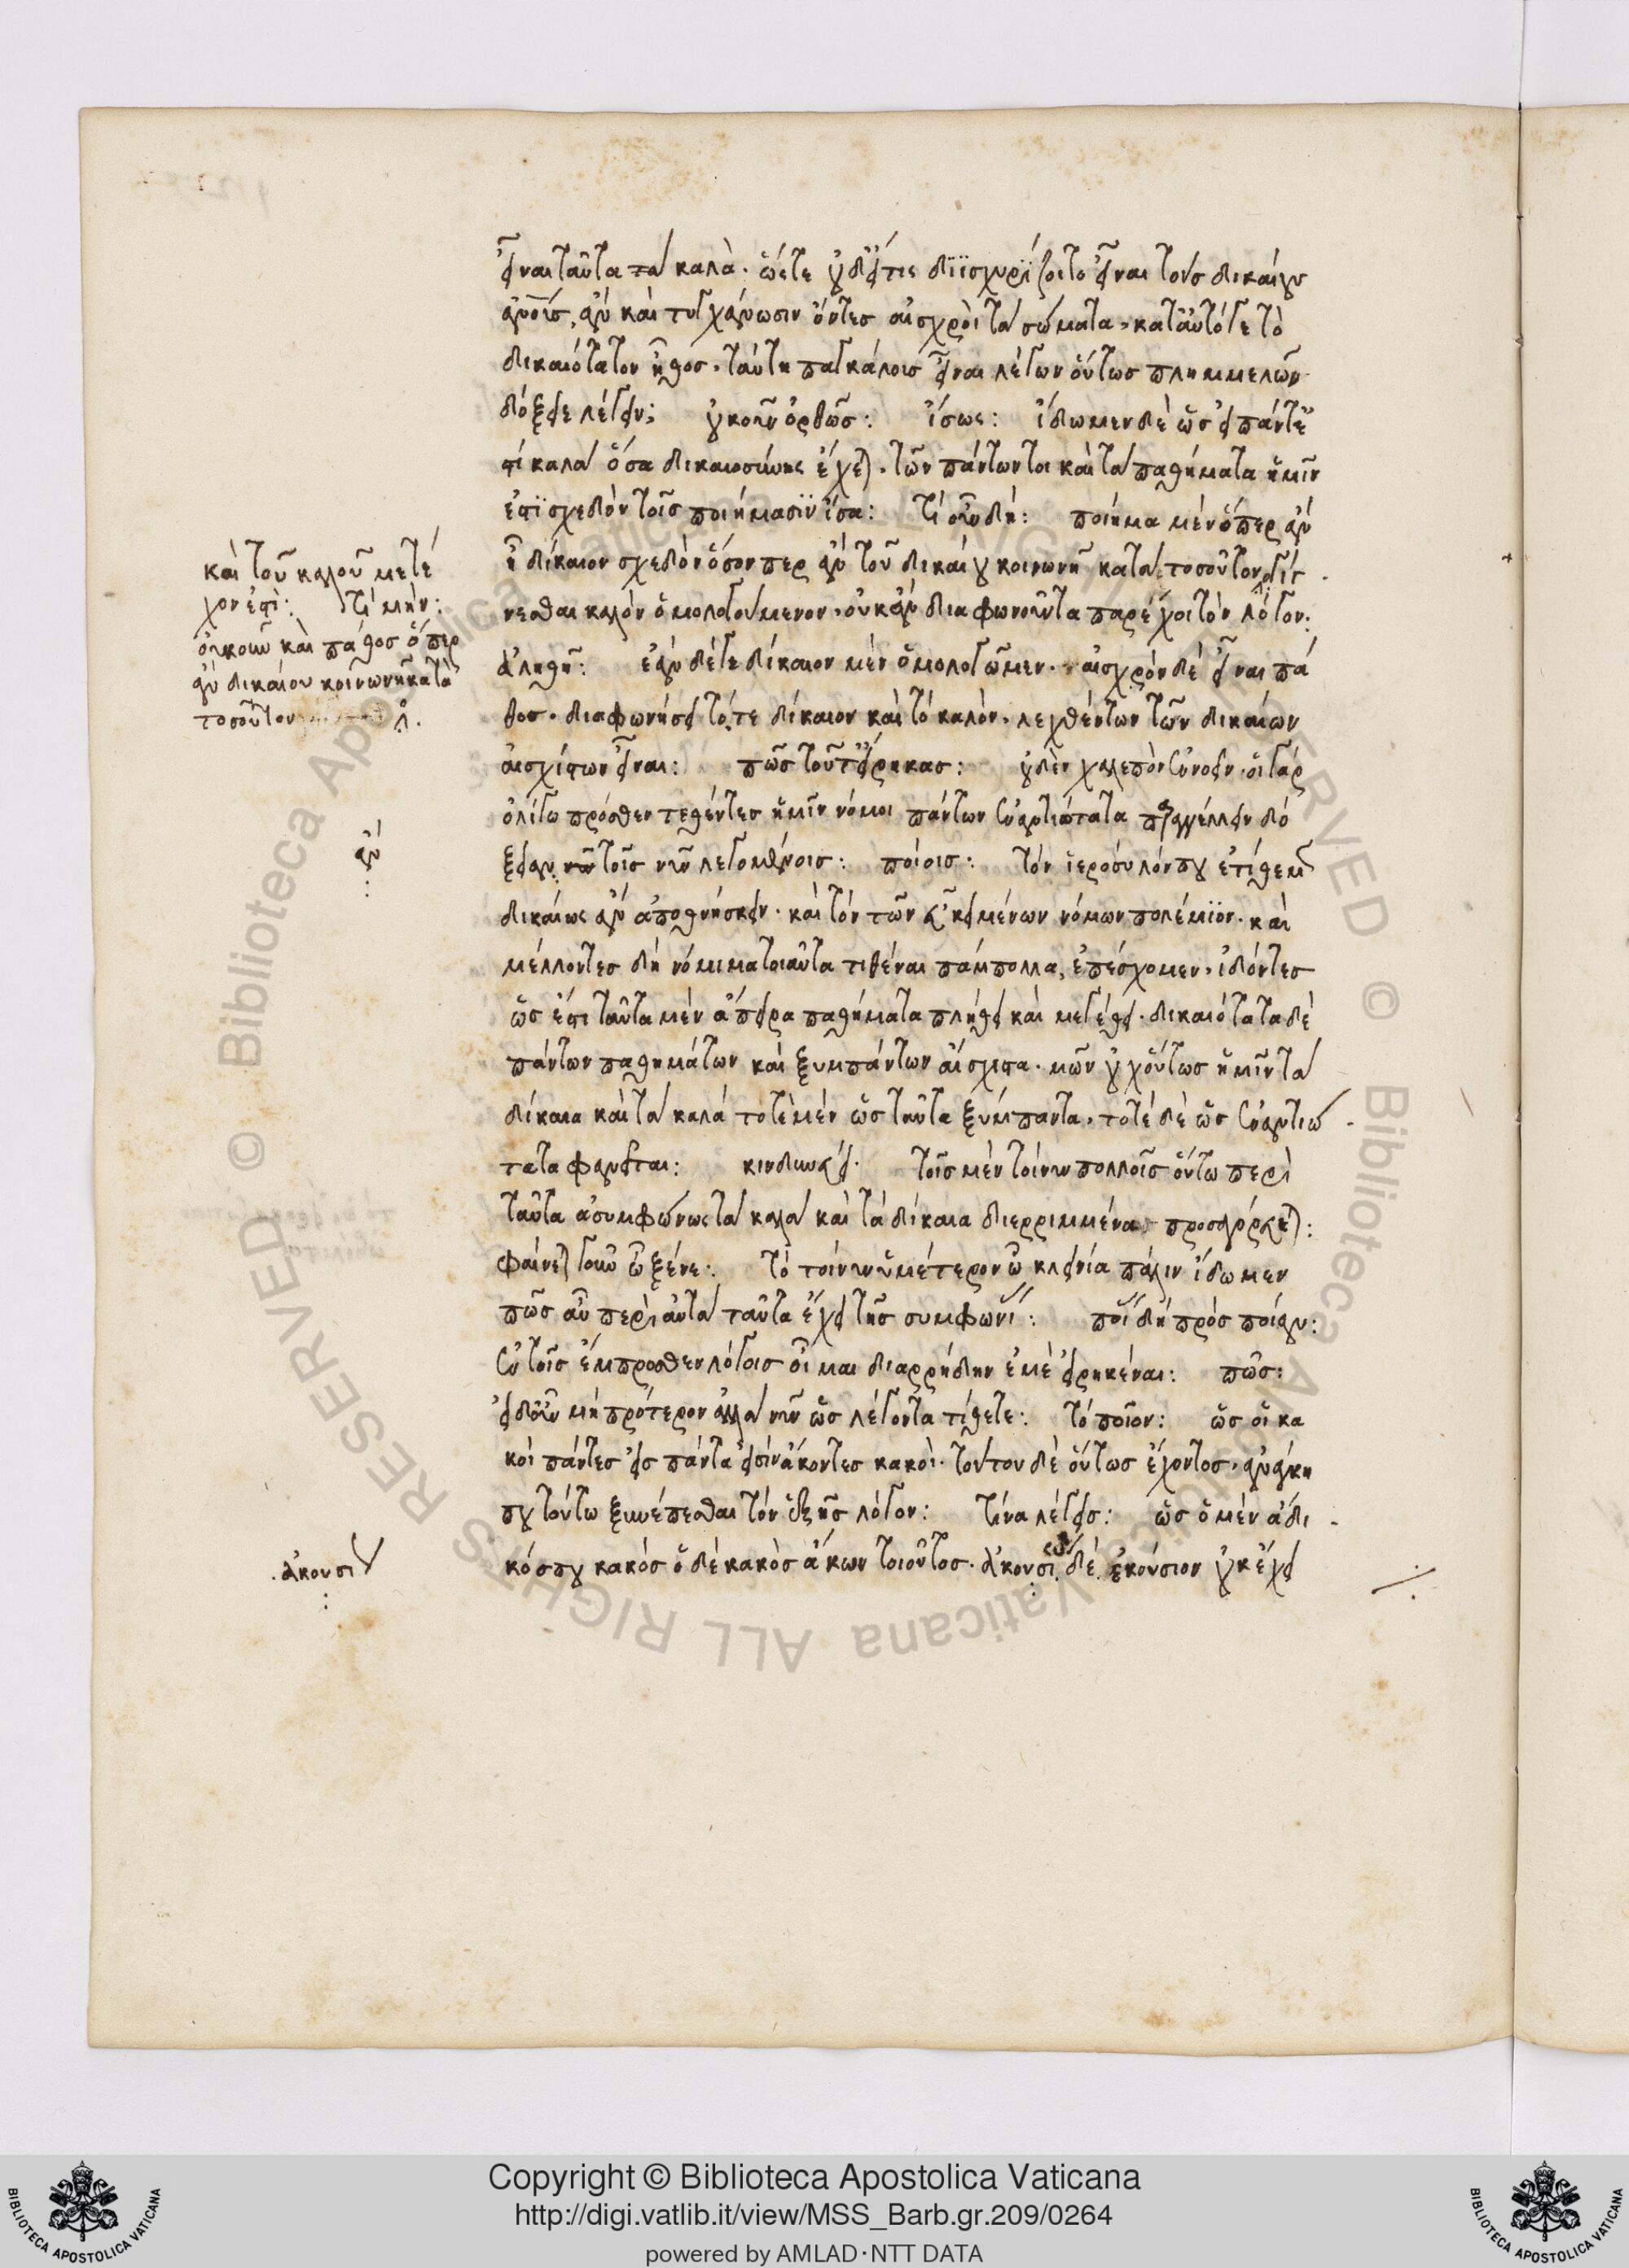 εἶναι ταῦτα τὰ καλὰ. ὥστε οὐδ' εἴ τις διϊσχυρίζοιτο εἶναι τοὺς δικαίους
ἀν̅οὺς, ἂν καὶ τυγχάνωσιν ὄντες αἰσχροὶ τὰ σώματα, κατ' αὐτό γε τὸ
δικαιότατον ἦθος, ταύτη παγκάλους εἶναι λέγων οὕτως πλημμελῶς
δόξειε λέγειν; οὐκοῦν ὀρθῶς: ἴσως: ἴδωμεν δὲ ὡς εἰ πάντ' ἐ
στὶ καλὰ ὅσα δικαιοσύνης ἔχεται, τῶν πάντων τοι καὶ τὰ παθήματα ἡμῖν
ἐστὶ σχεδὸν τοῖς ποιήμασιν ἴσα: τί οὖν δή: ποίημα μὲν ὅπερ ἂν
ᾖ δίκαιον σχεδὸν ὅσον περ ἂν τοῦ δικαίου κοινωνῆ κατὰ τοσοῦτον γίγ
νεσθαι καλὸν ὁμολογούμενον, οὐκ ἂν διαφωνοῦντα παρέχοι τὸν λόγον:
ἀληθῆ: ἐὰν δέ γε δίκαιον μὲν ὁμολογῶμεν, αἰσχρὸν δὲ εἶναι πά
θος, διαφωνήσει τό τε δίκαιον καὶ τὸ καλὸν, λεχθέντων τῶν δικαίων
αἰσχίστων εἶναι: πῶς τοῦτ' εἴρηκας: οὐδὲν χαλεπὸν ἐννοεῖν. οἱ γὰρ
ὀλίγω πρόσθεν τεθέντες ἡμῖν νόμοι πάντων ἐναντιώτατα παραγγέλλειν δό
ξειαν τοῖς νῦν λεγομένοις: ποίοις: τὸν ἱερόσυλόν που ἐτίθεμεν
δικαίως ἂν ἀποθνήσκειν. καὶ τὸν τῶν εὖ κειμένων νόμων πολέμιον. καὶ
μέλλοντες δὴ νόμιμα τοιαῦτα τιθέναι πάμπολλα, ἐπέσχομεν, ἰδόντες
ὡς ἔστι ταῦτα μὲν ἄπειρα παθήματα πλήθει καὶ μεγέθει. δικαιότατα δὲ
πάντων παθημάτων καὶ ξυμπάντων αἴσχιστα. μῶν οὐχ οὕτως ἡμῖν τὰ
δίκαια καὶ τὰ καλὰ τοτὲ μὲν ὡς ταῦτα ξύμπαντα, τοτὲ δὲ ὡς ἐναντιώ
τατα φανεῖται: κινδυνεύει. τοῖς μὲν τοίνυν πολλοῖς οὕτω περὶ
ταῦτα ἀσυμφώνως τὰ καλὰ καὶ τὰ δίκαια διερριμμένα προσαγορεύεται:
φαίνεται γοῦν ὦ ξένε: τὸ τοίνυν ὑμέτερον ὦ κλεινία πάλιν ἴδωμεν
πῶς αὖ περὶ αὐτὰ ταῦτα ἔχει τῆς συμφωνίας: ποίας δὴ πρὸς ποίαν:
ἐν τοῖς ἔμπροσθεν λόγοις οἶμαι διαρρήδην ἐμὲ εἰρηκέναι: πῶς:
εἰ δ' οὖν μὴ πρότερον ἀλλὰ νῦν ὡς λέγοντα τίθετε: τὸ ποῖον: ὡς οἱ κα
κοὶ πάντες εἰς πάντα εἰσὶν ἄκοντες κακοὶ. τούτου δὲ οὕτως ἔχοντος, ἀνάγκη
που τούτω ξυνέπεσθαι τὸν ἑξῆς λόγον: τίνα λέγεις: ὡς ὁ μὲν ἄδι
κός που κακός ὁ δὲ κακὸς ἄκων τοιοῦτος. ἀκουσίως δὲ ἑκούσιον οὐκ ἔχει
καὶ τοῦ καλοῦ μετέ
χον ἐστὶ: τί μήν:
οὐκοῦν καὶ πάθος ὅπερ
ἂν δικαίου κοινωνῆ κατὰ
τοσοῦτον
ἂν
ἀκουσι
Copyright © Biblioteca Apostolica Vaticana
http://digi.vatlib.it/view/MSS_Barb.gr.209/0264
powered by AMLAD·NTT DATA
BIBLIOTECA APOSTOLICA VATICANA
BIBLIOTECA APOSTOLICA VATICANA
© Biblioteca Apostolica Vaticana ALL RIGHTS RESERVED